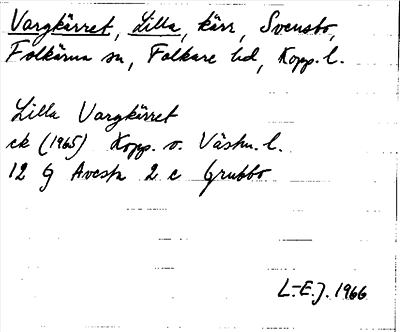 Vargkärret, Lilla, kärr, Svensbo,
Folkärna sn, Folkare hd, Kopp. l.
Lilla Vargkärret
ek (1965) Kopp. o. Västm. l.
12 G Avesta 2 c Grubbo
L-E.J. 1966